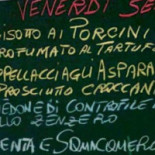 VENERDI SE
ISOTTO AI PORCINI
PROFUMATO AL TARTUF
APPELLACCI AGLI ASPARA
PROSCIUTO CROCCAN
EDONE DI CONTROFILE
LLO ZENZERO
ENTA E SQUACQUERO